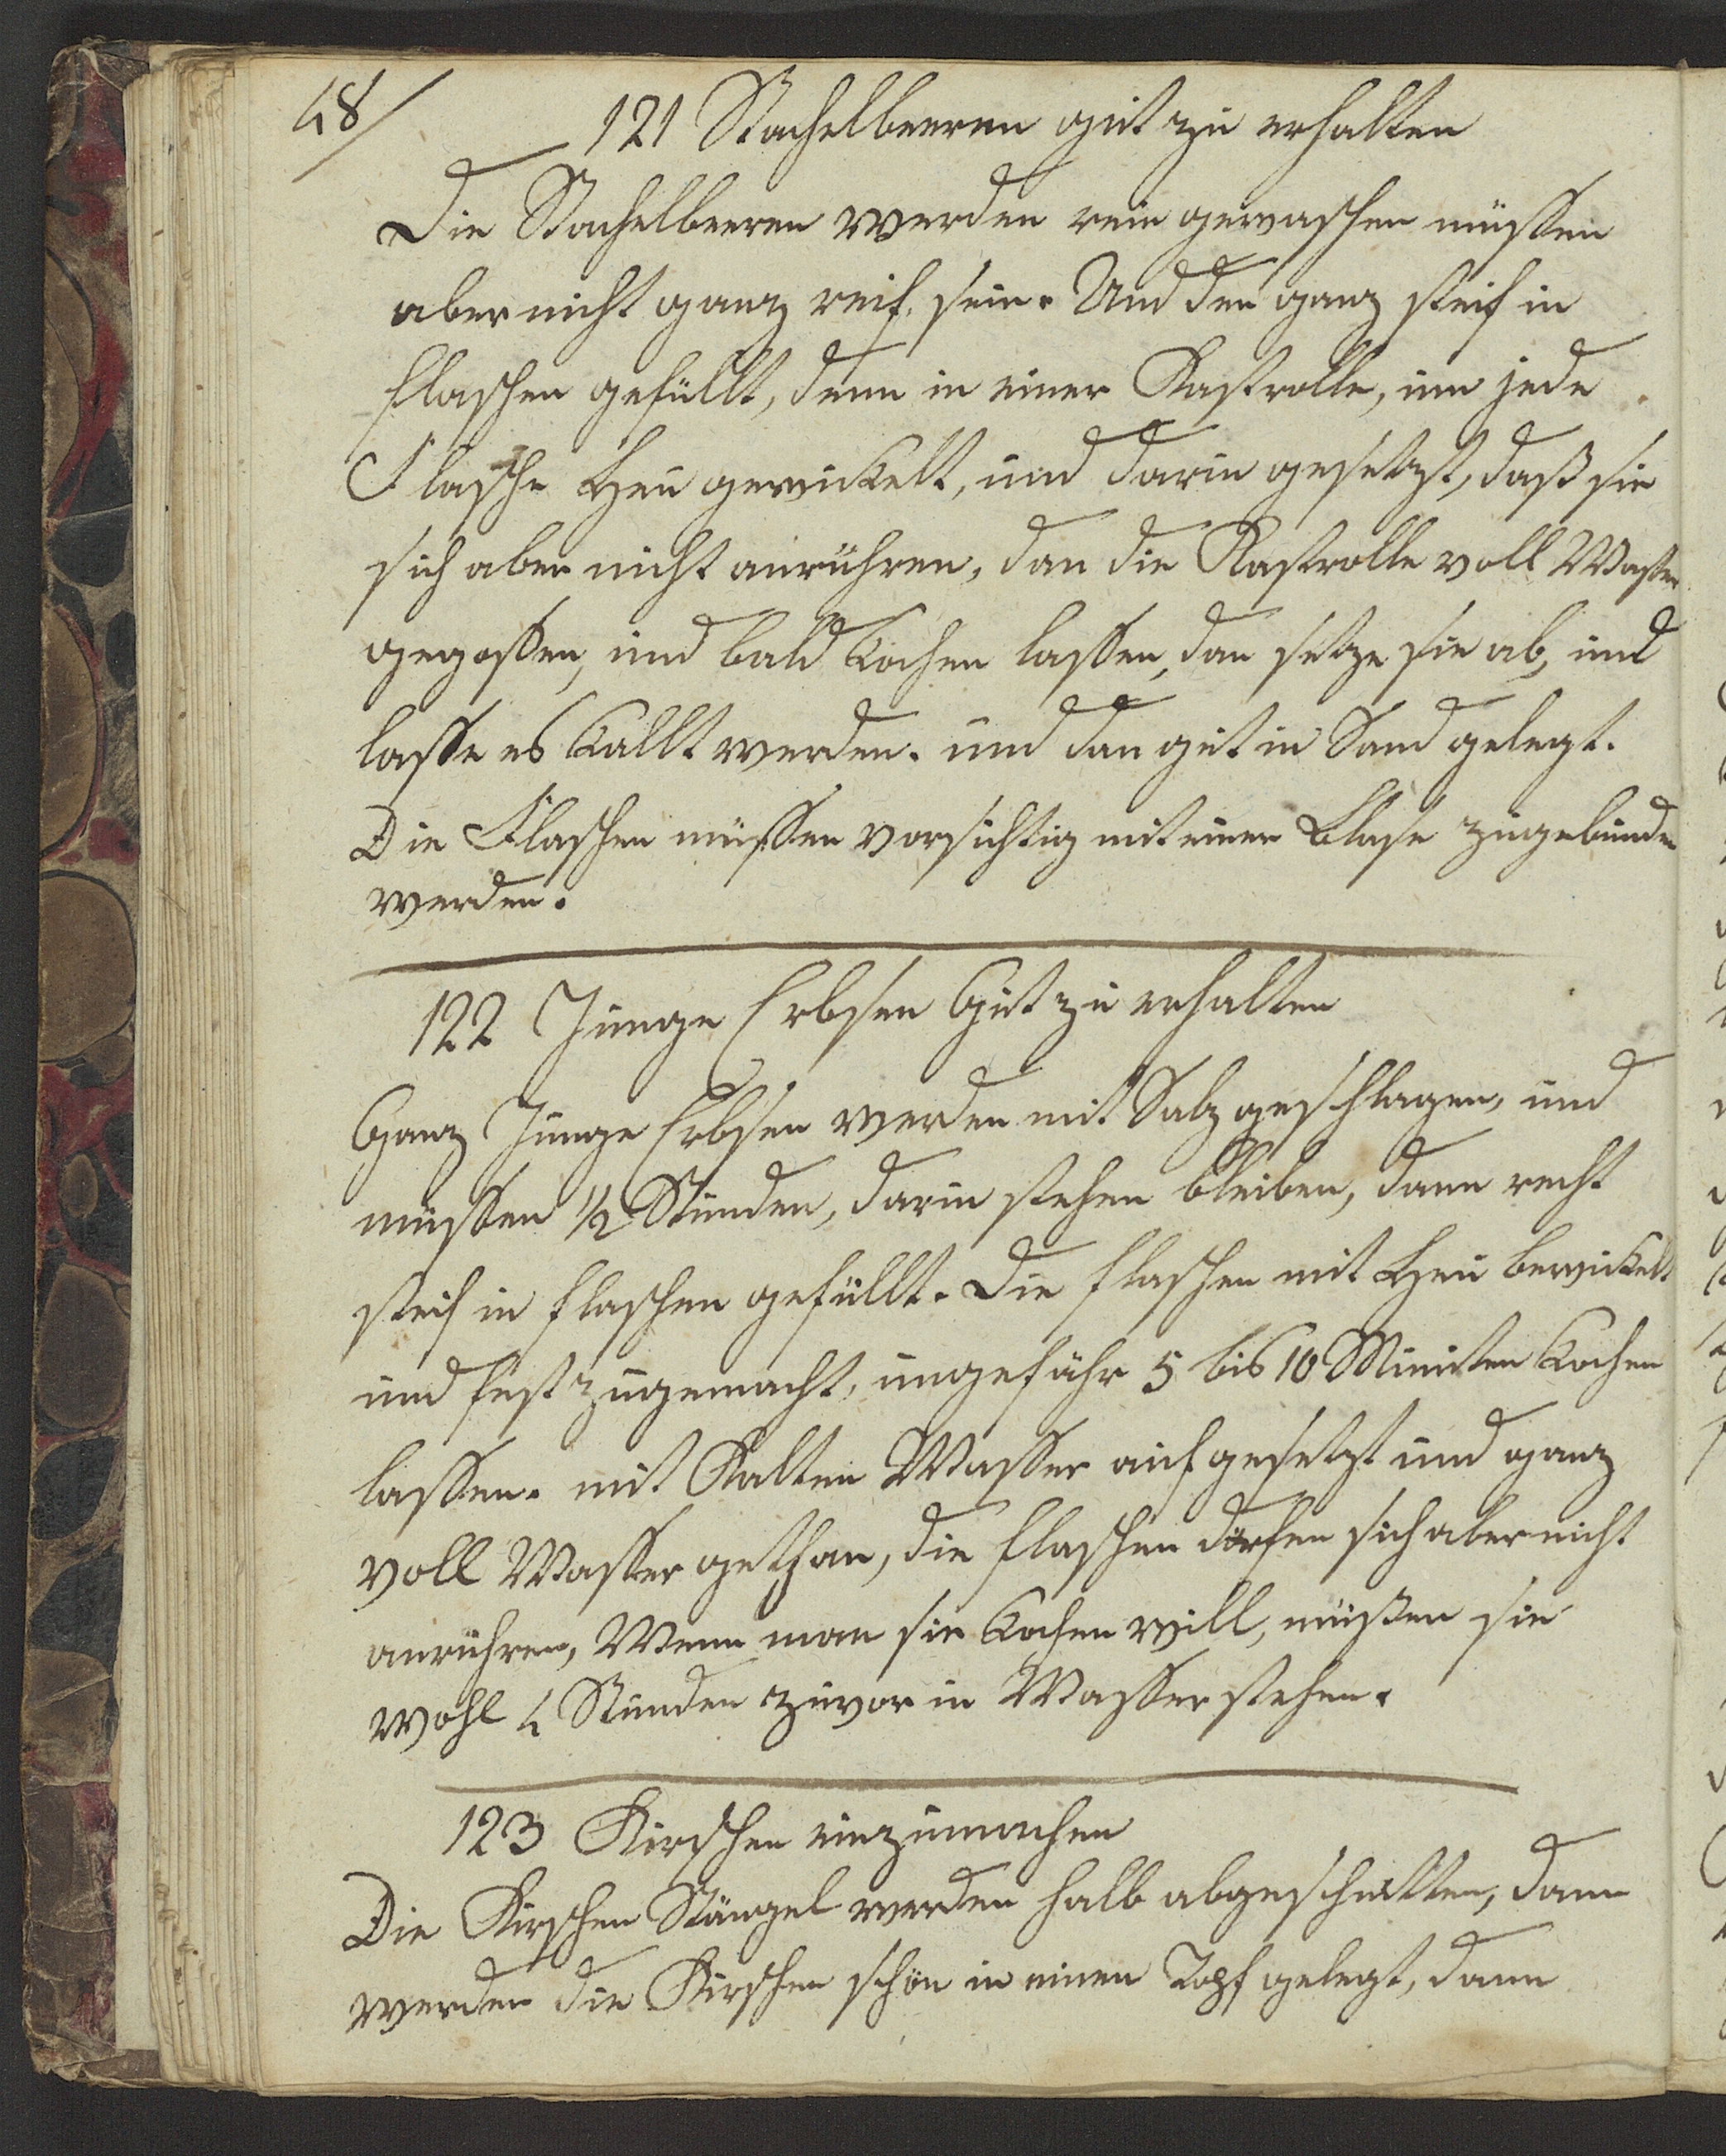 48/
121 Stachelbeeren gut zu erhalten
Die Stachelbeeren werden rein gewaschen müssen
aber nicht ganz reif, sein. Und den ganz steif in
flaschen gefüllt, denn in einer Kastrolle, um jede
Flasche Heu gewickelt, und darin gesetzt, daß sie
sich aber nicht anrühren, dan die Kastrolle voll Wasser
gegossen, und bald kochen lassen, dan setze sie ab, und
lasse es kallt werden. und dan gut in Sand gelegt.
Die Flaschen müssen vorsichtig mit einer Blase zugebunden
werden.
122 Junge Erbsen Gut zu erhalten
Ganz Junge Erbsen werden mit Salz geschlagen, und
müssen 1/2 Stunden, darin stehen bleiben, dann recht
steif in flaschen gefüllt. Die flaschen mit Heu bewickelt
und fest zugemacht, ungefähr 5 bis 10 Minuten kochen
lassen. mit Kalten Wasser aufgesetzt und ganz
voll Wasser gethan, die flaschen dörfen sich aber nicht
anrühren, Wenn man sie kochen will, müssen sie
wohl 4 Stunden zuvor in Wasser stehen.
123 Kirschen einzumachen
Die Kirschen Stängel werden halb abgeschnitten, dann
werden die Kirschen schön in einen Topf gelegt, dann